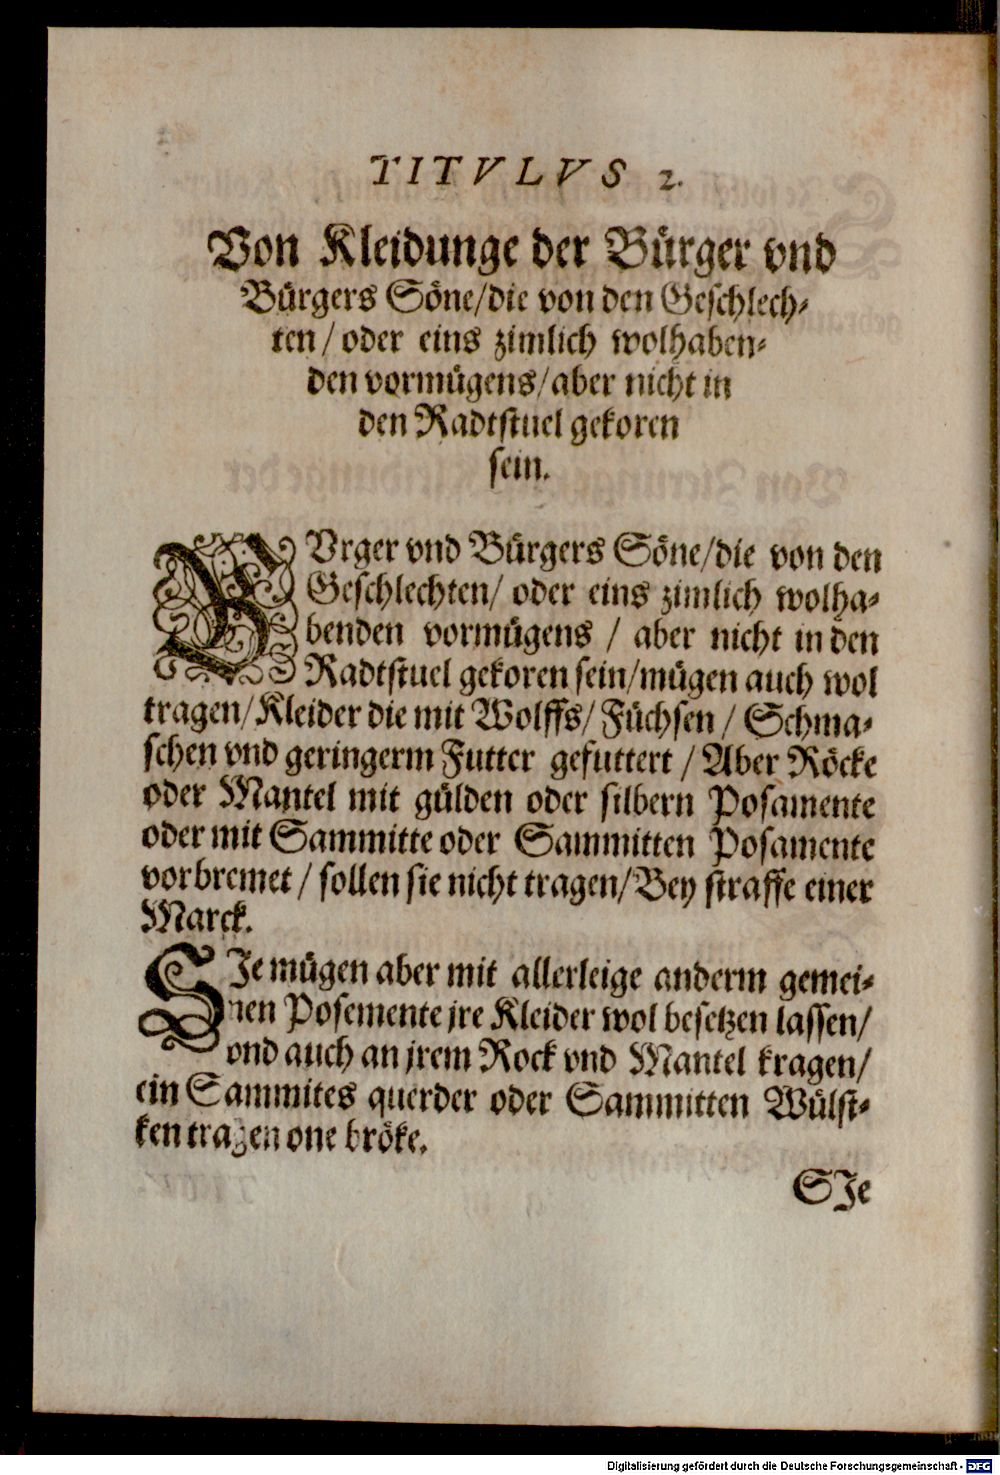 TITVLVS 2.
Von Kleidunge der Bürger vnd
Bürgers Söne/die von den Geschlech-
ten / oder eins zimlich wolhaben-
den vormügens/aber nicht in
den Radtstuel gekoren
sein.
BVrger vnd Bürgers Söne/die von den
Geschlechten/ oder eins zimlich wolha-
benden vormügens / aber nicht in den
Radtstuel gekoren sein/mügen auch wol
tragen/Kleider die mit Wolffs/ Füchsen / Schma-
schen vnd geringerm Futter gefuttert / Aber Röcke
oder Mantel mit gülden oder silbern Posamente
oder mit Sammitte oder Sammitten Posamente
vorbremet / sollen sie nicht tragen/Bey straffe einer
Marck.
SJe mügen aber mit allerleige anderm gemei-
nen Posemente jre Kleider wol besetzen lassen/
vnd auch an jrem Rock vnd Mantel kragen/
ein Sammites querder oder Sammitten Wülst-
ken tragen one bröke.
SJe
Digitalisierung gefördert durch die Deutsche Forschungsgemeinschaft - DFG